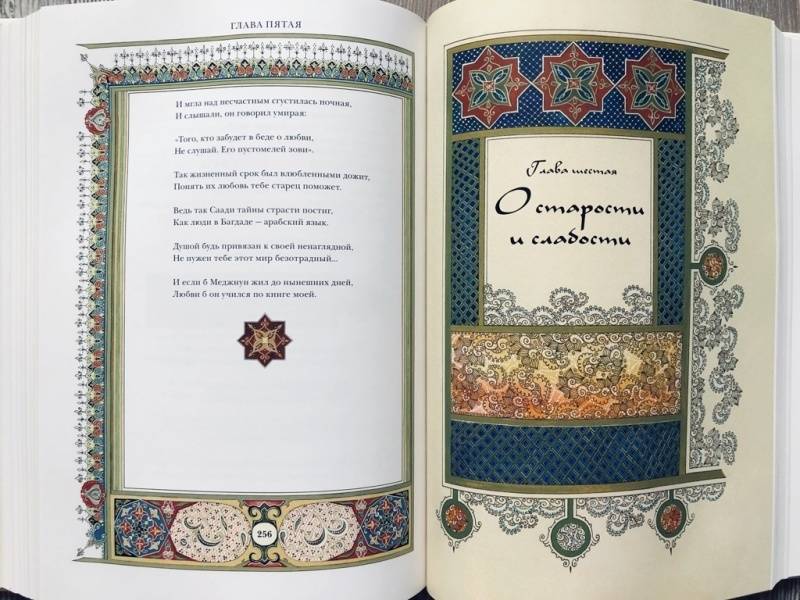 ГЛАВА ПЯТАЯ
И мгла над несчастным сгустилась ночная,
И слышали, он говорил умирая:
«Того, кто забудет в беде о любви,
Не слушай. Его пустомелей зови».
Так жизненный срок был влюбленными дожит,
Понять их любовь тебе старец поможет.
Ведь так Саади тайны страсти постиг,
Как люди в Багдаде — арабский язык.
Душой будь привязан к своей ненаглядной,
Не нужен тебе этот мир безотрадный...
И если б Меджнун жил до нынешних дней,
Любви б он учился по книге моей.
256
Глава шестая
О старости
и слабости